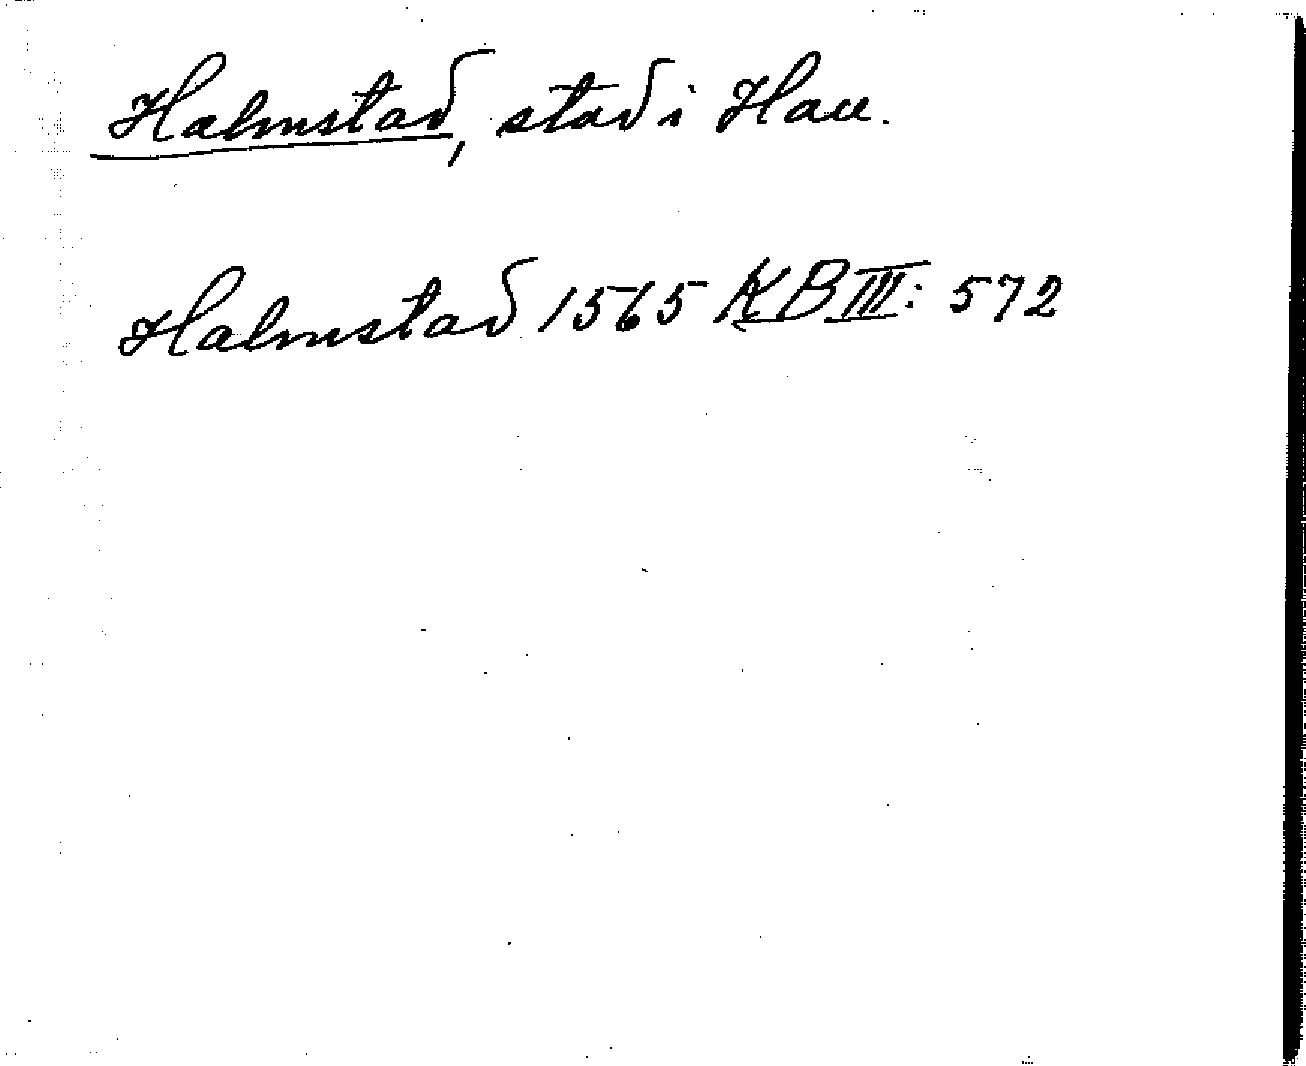 Halmstad, stad i Hall.
Halmstad 1565 KB III: 572